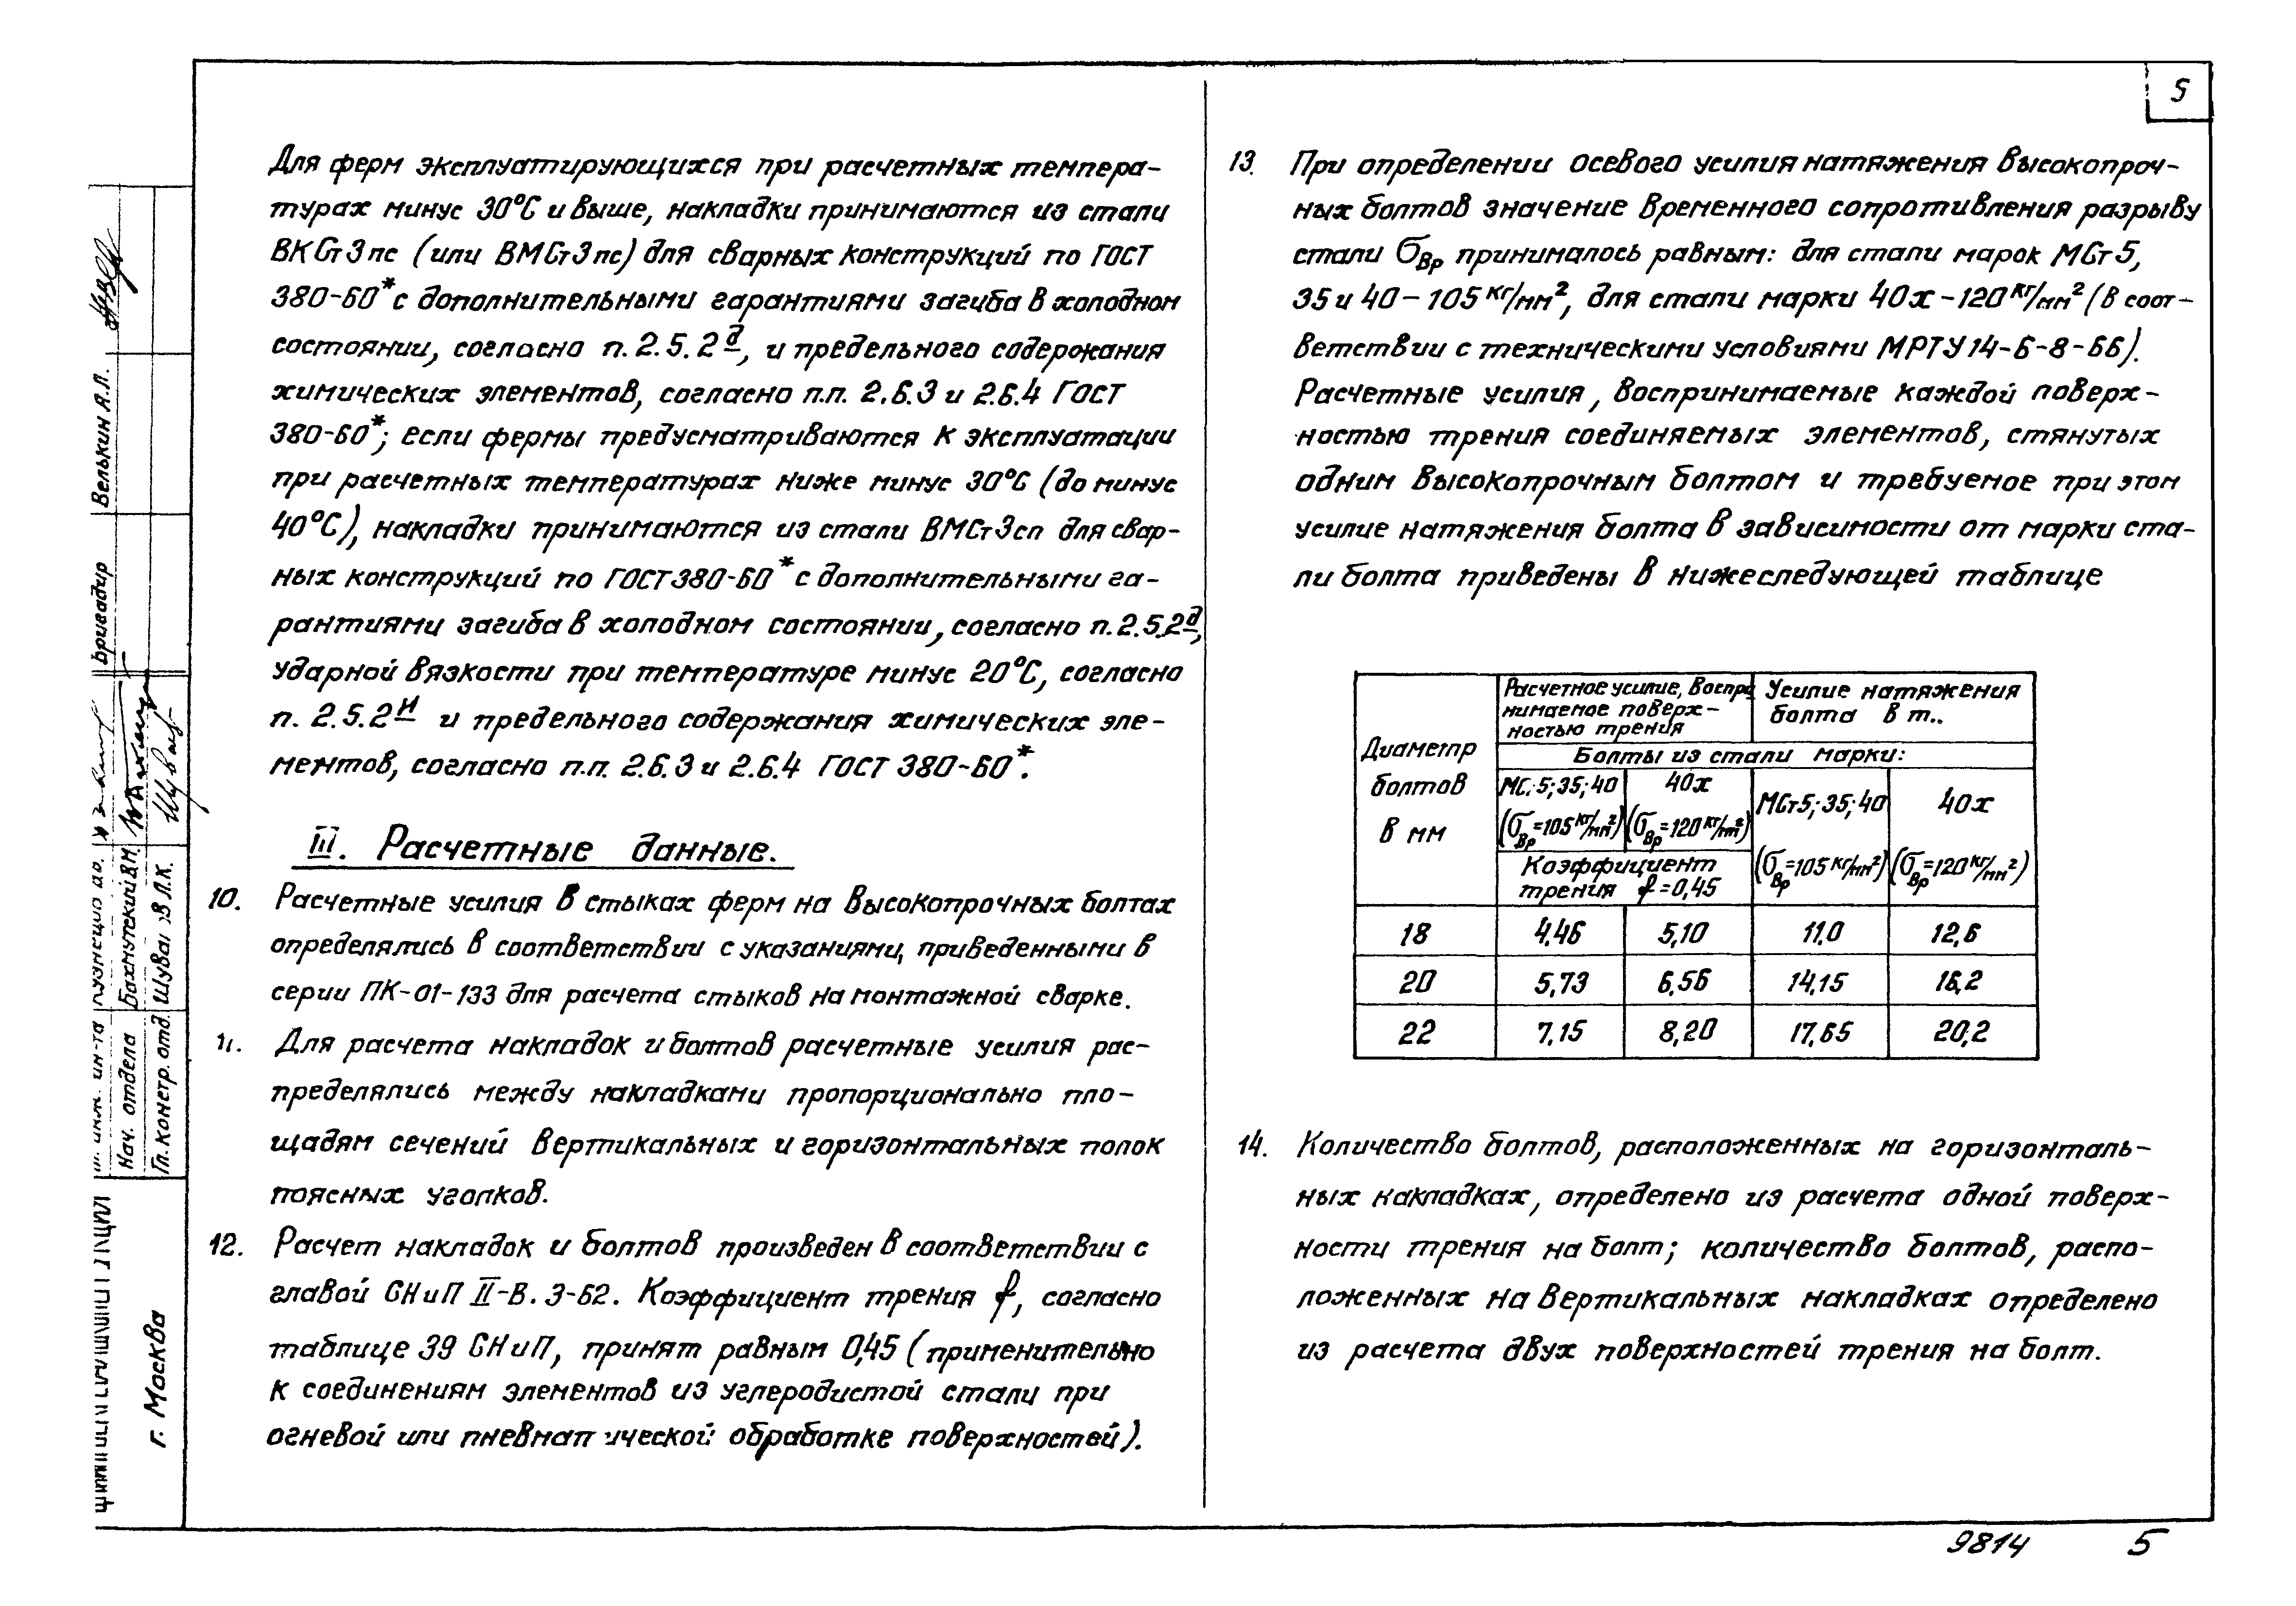 5
Для ферм эксплуатирующихся при расчетных темпера-
турах минус 30°С и выше, накладки принимаются из стали
ВКСт3пс (или ВМСт3пс) для сварных конструкций по ГОСТ
380-60* с дополнительными гарантиями загиба в холодном
состоянии, согласно п. 2.5.2д, и предельного содержания
химических элементов, согласно п.п. 2.6.3 и 2.6.4 ГОСТ
380-60*; если фермы предусматриваются к эксплуатации
при расчетных температурах ниже минус 30°С (до минус
40°С), накладки принимаются из стали ВМСт3сп для свар-
ных конструкций по ГОСТ380-60* с дополнительными га-
рантиями загиба в холодном состоянии, согласно п. 2.5.2д,
ударной вязкости при температуре минус 20°С, согласно
п. 2.5.2и и предельного содержания химических эле-
ментов, согласно п.п. 2.6.3 и 2.6.4 ГОСТ 380-60*.
III. Расчетные данные.
10. Расчетные усилия в стыках ферм на высокопрочных болтах
определялись в соответствии с указаниями, приведенными в
серии ПК-01-133 для расчета стыков на монтажной сварке.
11. Для расчета накладок и болтов расчетные усилия рас-
пределялись между накладками пропорционально пло-
щадям сечений вертикальных и горизонтальных полок
поясных уголков.
12. Расчет накладок и болтов произведен в соответствии с
главой СНиП II-В. 3-62. Коэффициент трения f, согласно
таблице 39 СНиП, принят равным 0,45 (применительно
к соединениям элементов из углеродистой стали при
огневой или пневматической обработке поверхностей).
13. При определении осевого усилия натяжения высокопроч-
ных болтов значение временного сопротивления разрыву
стали σвр принималось равным: для стали марок МСт5,
35 и 40 – 105 кг/мм², для стали марки 40х – 120 кг/мм² (в соот-
ветствии с техническими условиями МРТУ 14-6-8-66).
Расчетные усилия, воспринимаемые каждой поверх-
ностью трения соединяемых элементов, стянутых
одним высокопрочным болтом и требуемое при этом
усилие натяжения болта в зависимости от марки ста-
ли болта приведены в нижеследующей таблице
Диаметр
болтов
в мм
Расчетное усилие, воспри
нимаемое поверх-
ностью трения
Усилие натяжения
болта в т..
Болты из стали марки:
МС.5;35;40
(σвр=105 кг/мм²)
40х
(σвр=120 кг/мм²)
МСт5;35;40
(σвр=105 кг/мм²)
40х
(σвр=120 кг/мм²)
Коэффициент
трения f=0,45
18 4,46 5,10 11,0 12,6
20 5,73 6,56 14,15 16,2
22 7,15 8,20 17,65 20,2
14. Количество болтов, расположенных на горизонталь-
ных накладках, определено из расчета одной поверх-
ности трения на болт; количество болтов, распо-
ложенных на вертикальных накладках определено
из расчета двух поверхностей трения на болт.
Бригадир Велькин Я.Л.
ин-та
Нач. отдела Бахмутский В.М.
Гл. констр. отд.
г. Москва
9814 5